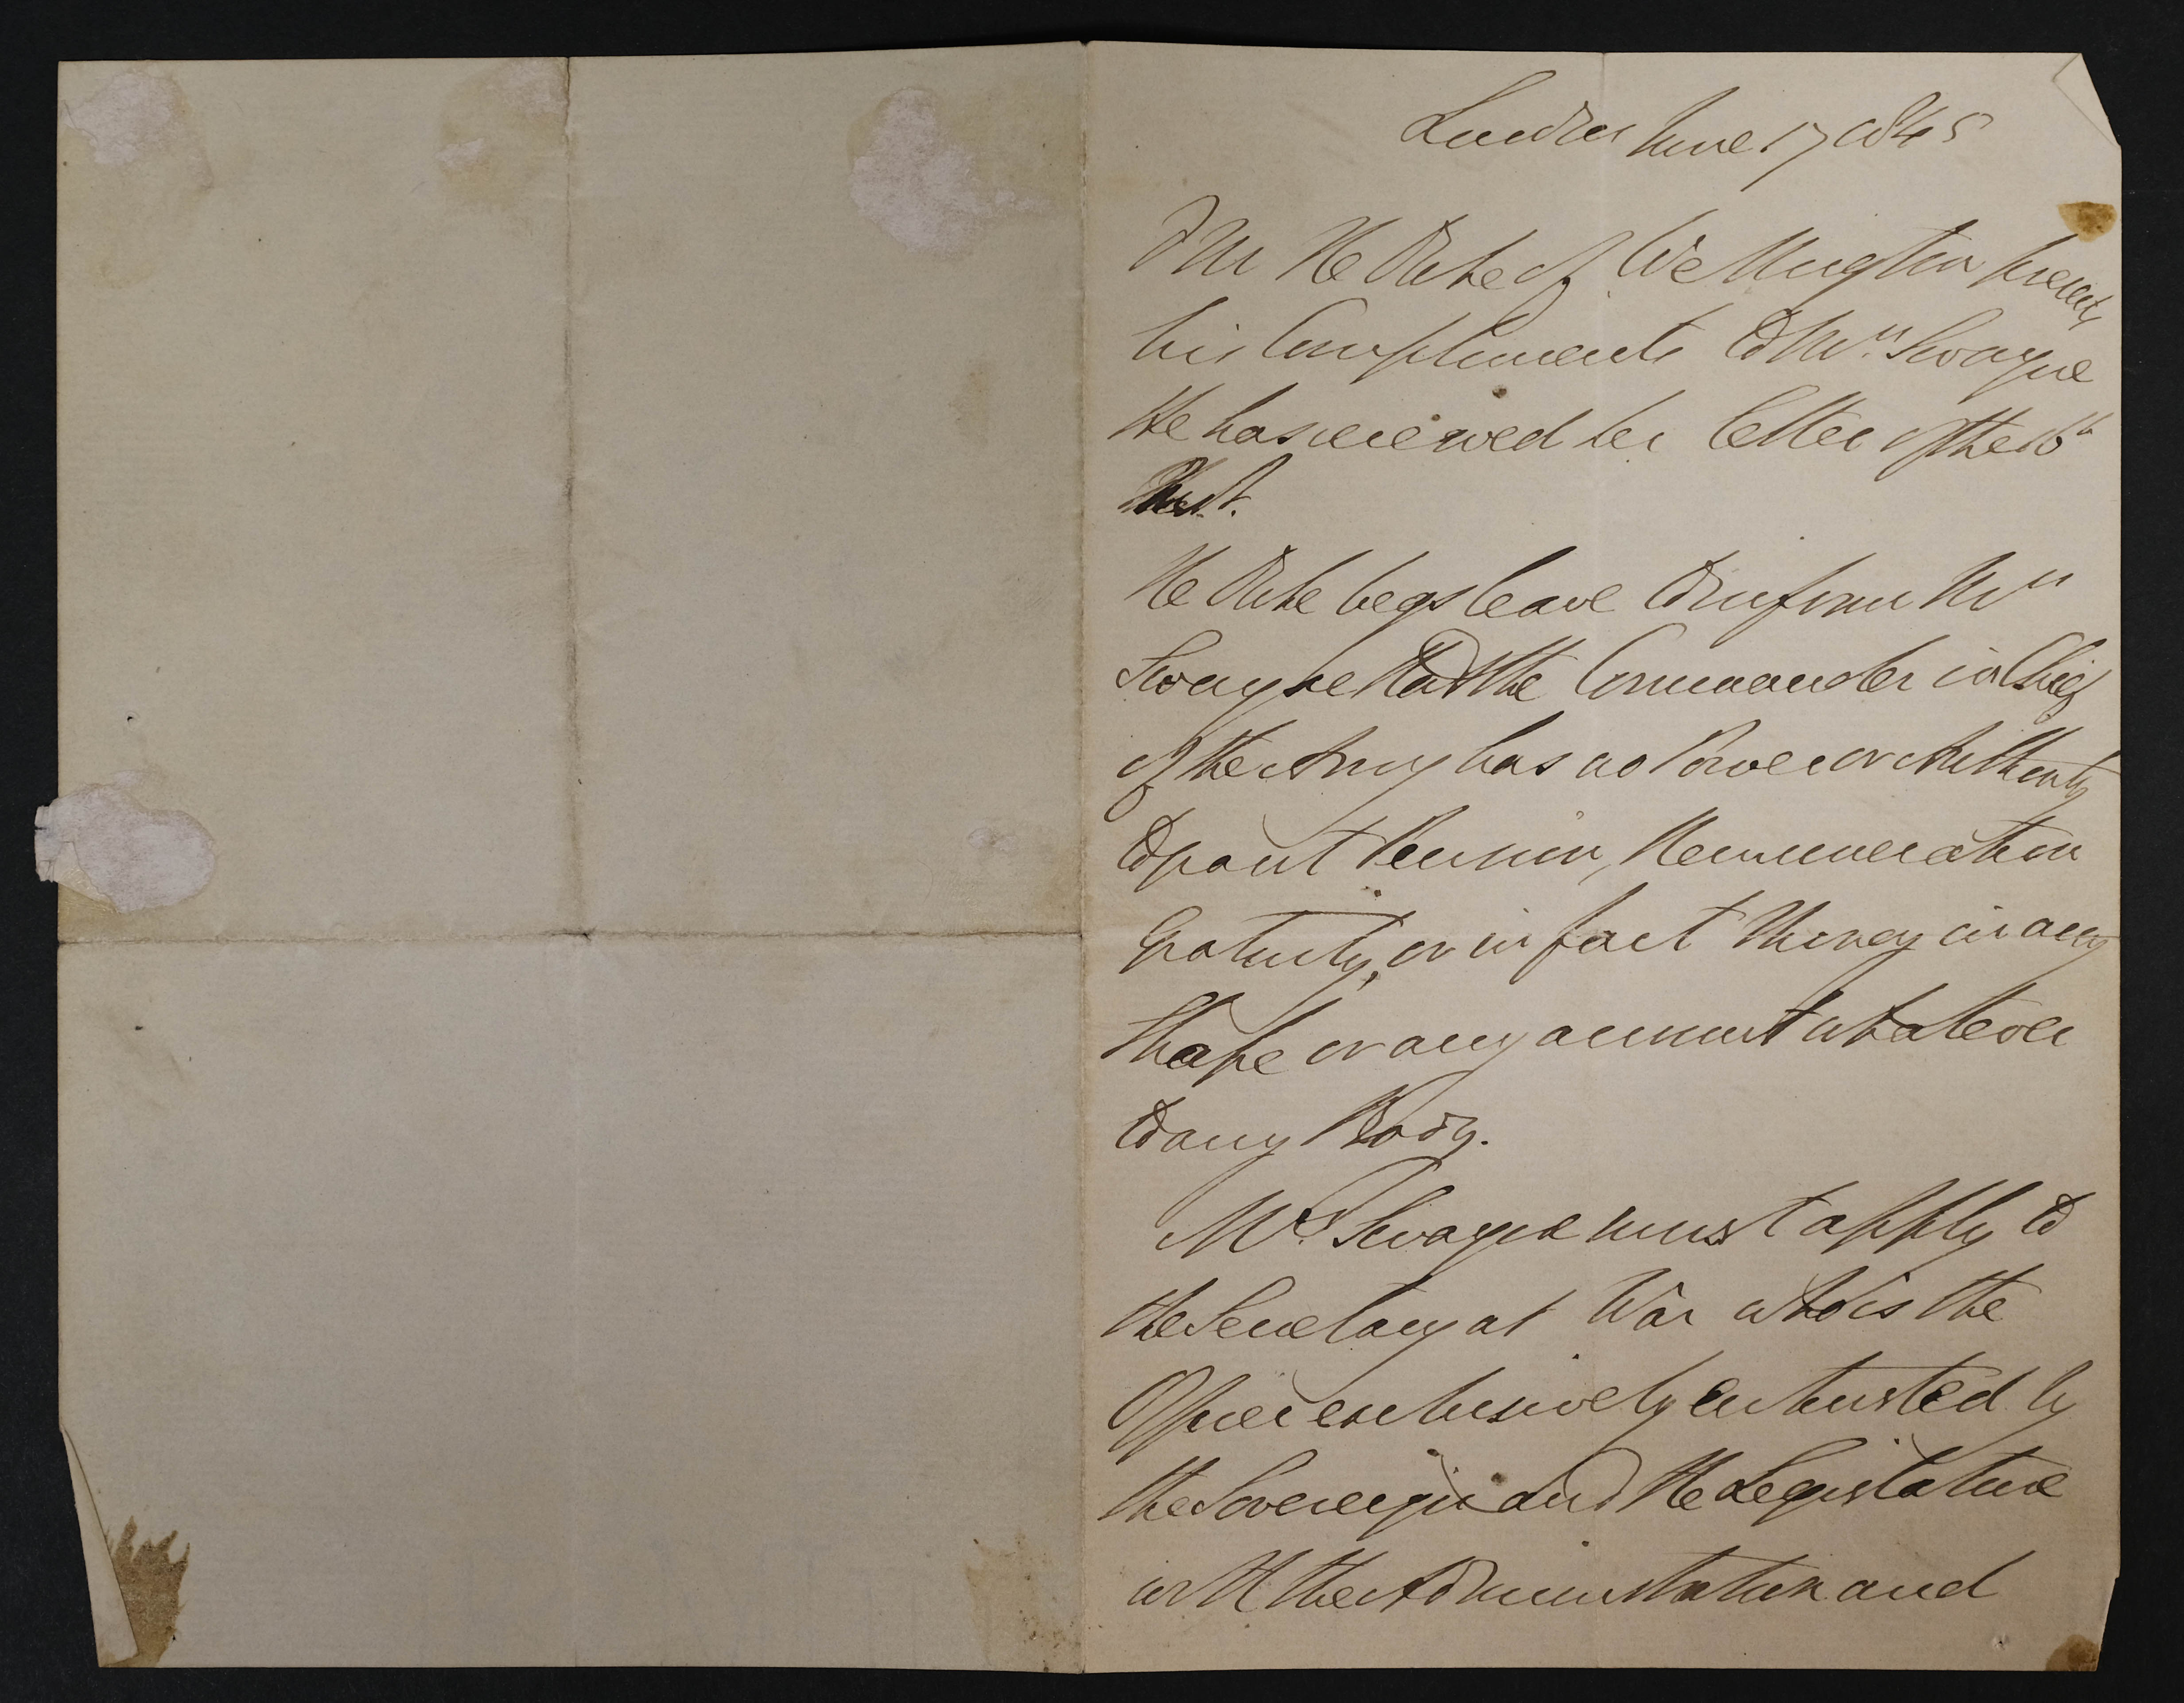 London June 17 1845
F M The Duke of Wellington presents
his Compliments to Mrs. Swayne
He has received her letter of the 16th
Inst.
The Duke begs leave to inform Mrs
Swayne that the Commander in Chief
of the Army has no Power or Authority
to grant Pension, Remuneration
Gratuity, or in fact Money in any
Shape or any amount whatever
to any Body.
Mrs. Swayne must apply to
the Secretary at War who is the
Officer exclusively entrusted by
the Sovereign and the Legislature
with the Administration and